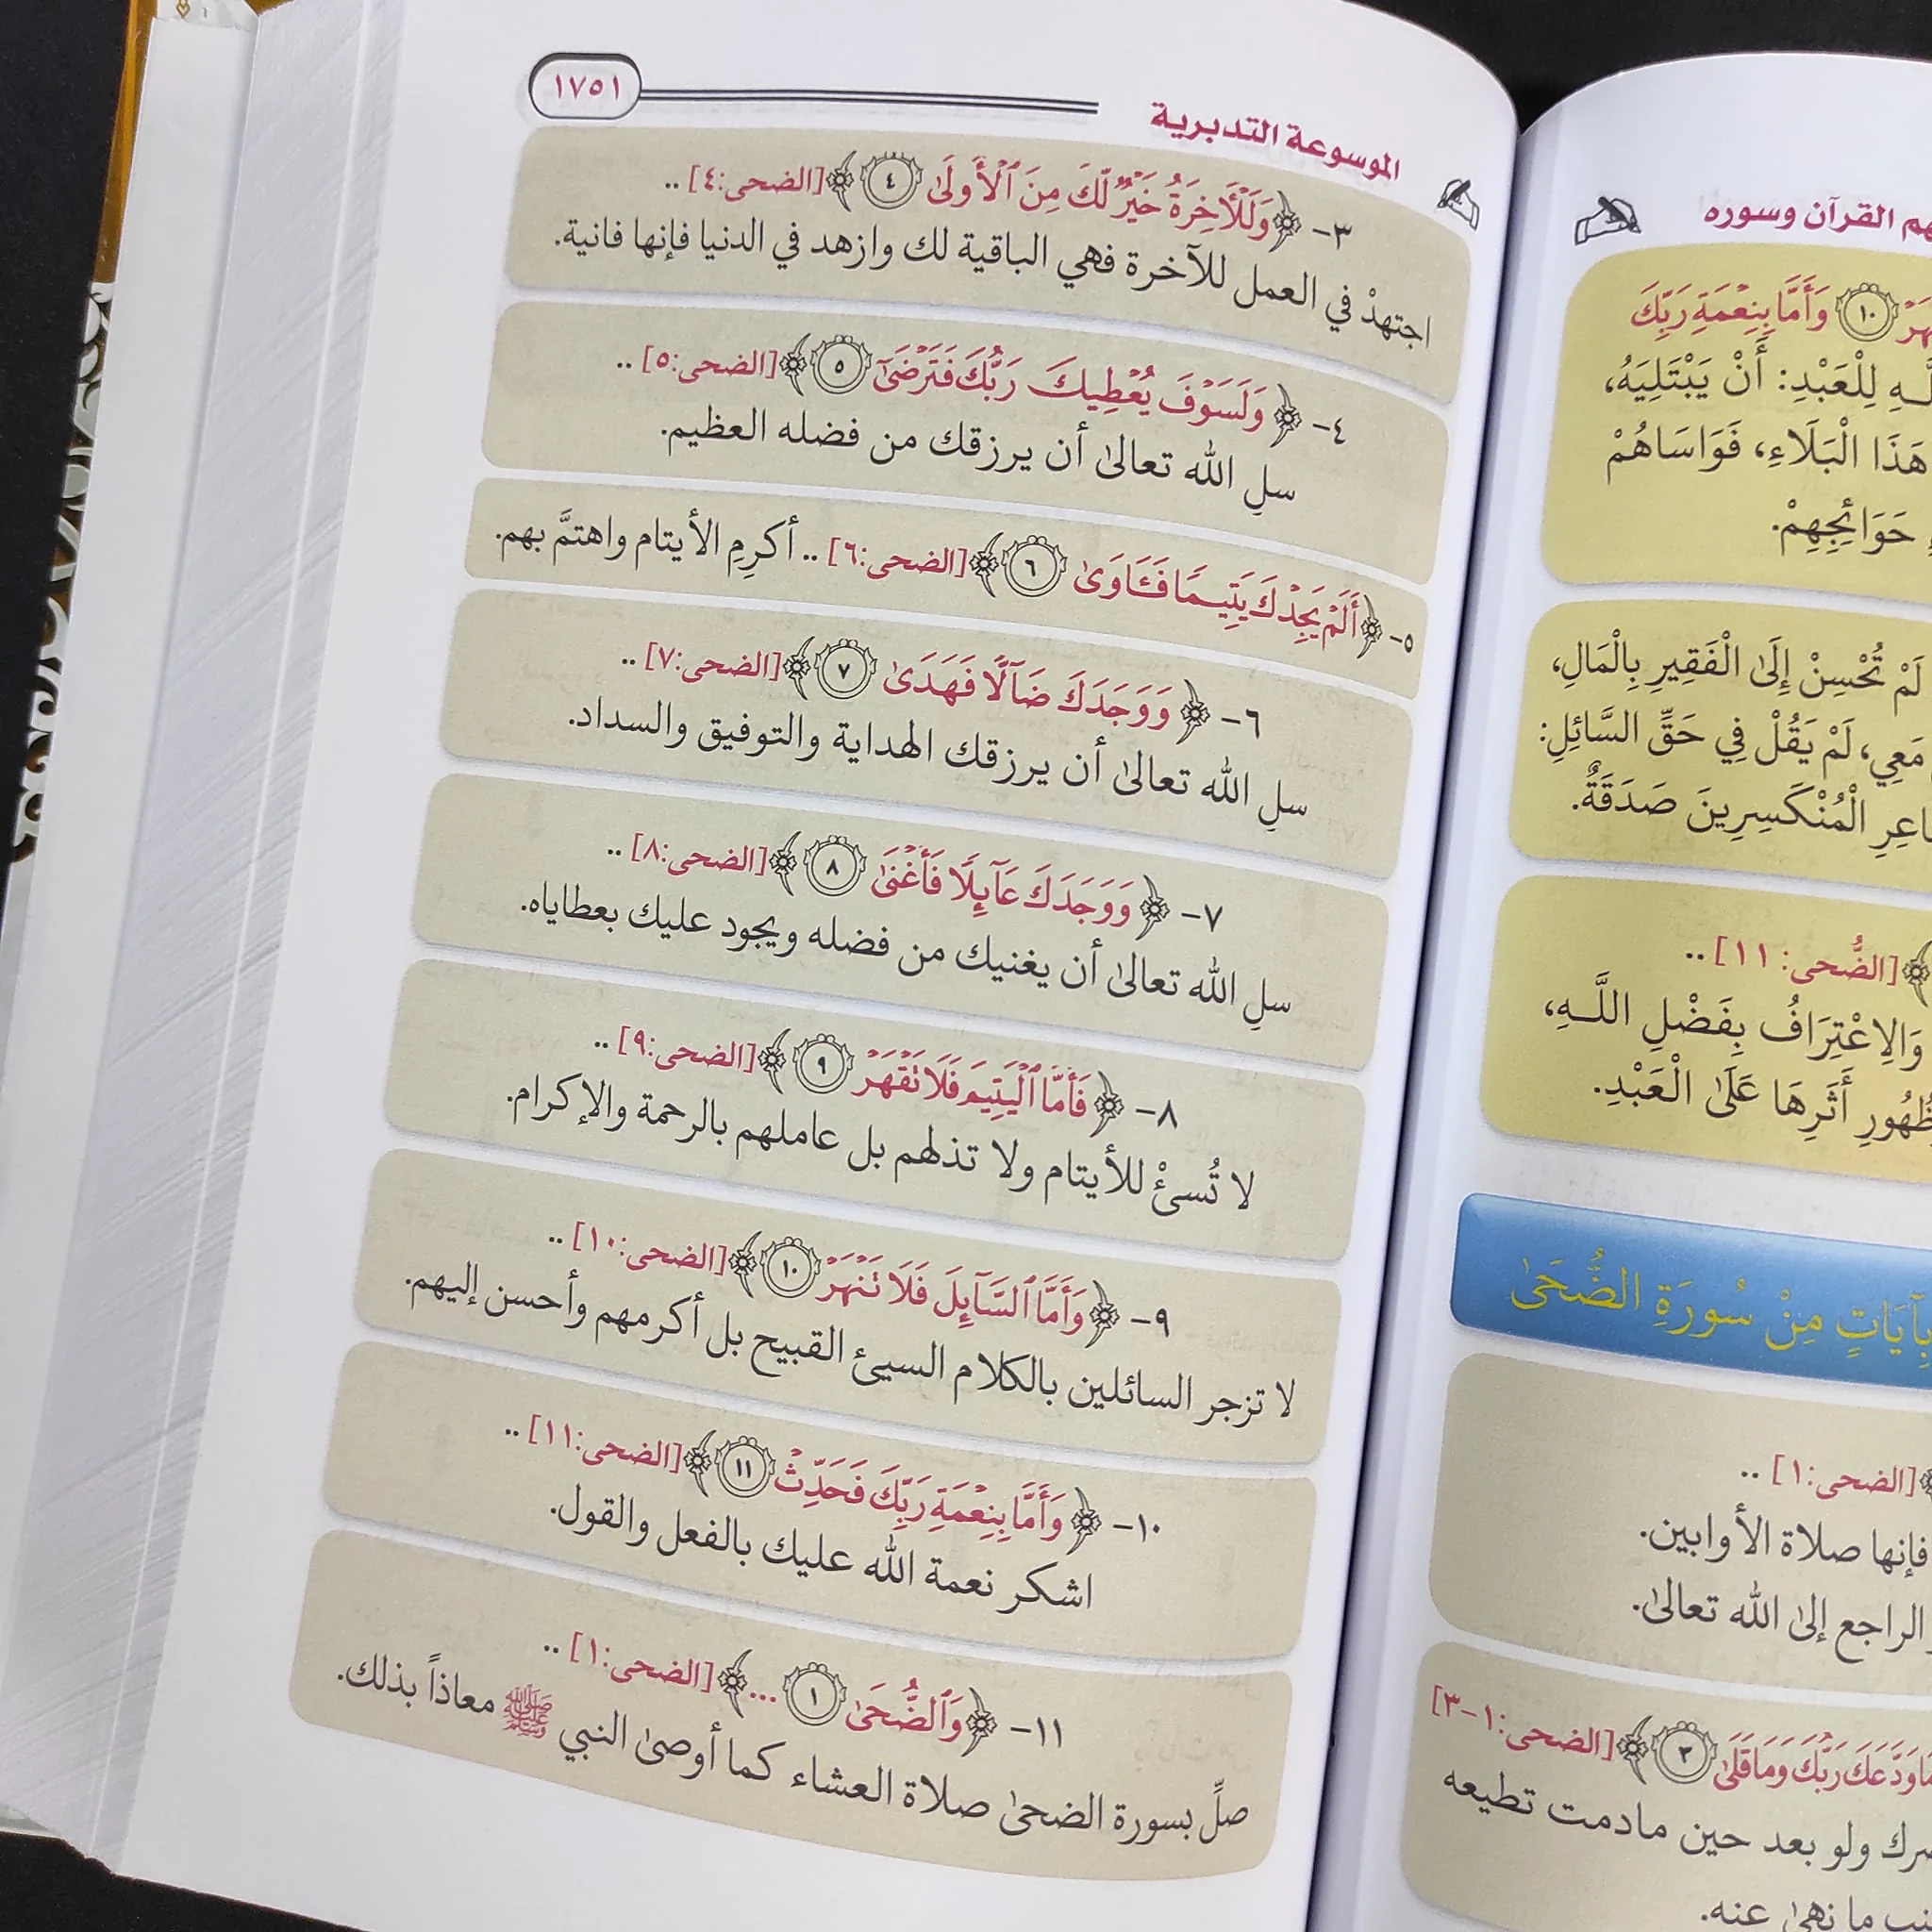 هم القرآن وسوره
١٠ وَأَمَّا بِنِعْمَةِ رَبِّكَ
لِلْعَبْدِ: أَنْ يَبْتَلِيَهُ،
هَذَا الْبَلَاءِ، فَوَاسَاهُمْ
حَوَائِجِهِمْ.
لَمْ تُحْسِنْ إِلَى الْفَقِيرِ بِالْمَالِ،
مَعِي، لَمْ يَقُلْ فِي حَقِّ السَّائِلِ:
الْمُنْكَسِرِينَ صَدَقَةٌ.
﴾ [الضُّحى: ١١] ..
وَالِاعْتِرَافُ بِفَضْلِ اللَّـهِ،
أَثَرِهَا عَلَى الْعَبْدِ.
بِآيَاتٍ مِنْ سُورَةِ الضُّحَىٰ
﴾ [الضحى:١] ..
فإنها صلاة الأوابين.
الراجع إلىٰ الله تعالىٰ.
وَدَّعَكَ رَبُّكَ وَمَا قَلَىٰ ٣ ﴾ [الضحى:١-٣]
ولو بعد حين مادمت تطيعه
ما نهىٰ عنه.
الموسوعة التدبرية
١٧٥١
٣- ﴿ وَلَلْأَخِرَةُ خَيْرٌ لَّكَ مِنَ ٱلْأُولَىٰ ٤ ﴾ [الضحى:٤] ..
اجتهدْ في العمل للآخرة فهي الباقية لك وازهد في الدنيا فإنها فانية.
٤- ﴿ وَلَسَوْفَ يُعْطِيكَ رَبُّكَ فَتَرْضَىٰٓ ٥ ﴾ [الضحى:٥] ..
سلِ الله تعالىٰ أن يرزقك من فضله العظيم.
٥- ﴿ أَلَمْ يَجِدْكَ يَتِيمًا فَـَٔاوَىٰ ٦ ﴾ [الضحى:٦] .. أكرِمِ الأيتام واهتمَّ بهم.
٦- ﴿ وَوَجَدَكَ ضَآلًّا فَهَدَىٰ ٧ ﴾ [الضحى:٧] ..
سلِ الله تعالىٰ أن يرزقك الهداية والتوفيق والسداد.
٧- ﴿ وَوَجَدَكَ عَآئِلًا فَأَغْنَىٰ ٨ ﴾ [الضحى:٨] ..
سلِ الله تعالىٰ أن يغنيك من فضله ويجود عليك بعطاياه.
٨- ﴿ فَأَمَّا ٱلْيَتِيمَ فَلَا تَقْهَرْ ٩ ﴾ [الضحى:٩] ..
لا تُسئْ للأيتام ولا تذلهم بل عاملهم بالرحمة والإكرام.
٩- ﴿ وَأَمَّا ٱلسَّآئِلَ فَلَا تَنْهَرْ ١٠ ﴾ [الضحى:١٠] ..
لا تزجر السائلين بالكلام السيئ القبيح بل أكرمهم وأحسن إليهم.
١٠- ﴿ وَأَمَّا بِنِعْمَةِ رَبِّكَ فَحَدِّثْ ١١ ﴾ [الضحى:١١] ..
اشكر نعمة الله عليك بالفعل والقول.
١١- ﴿ وَٱلضُّحَىٰ ١ ... ﴾ [الضحى:١] ..
صلِّ بسورة الضحىٰ صلاة العشاء كما أوصىٰ النبي ﷺ معاذاً بذلك.